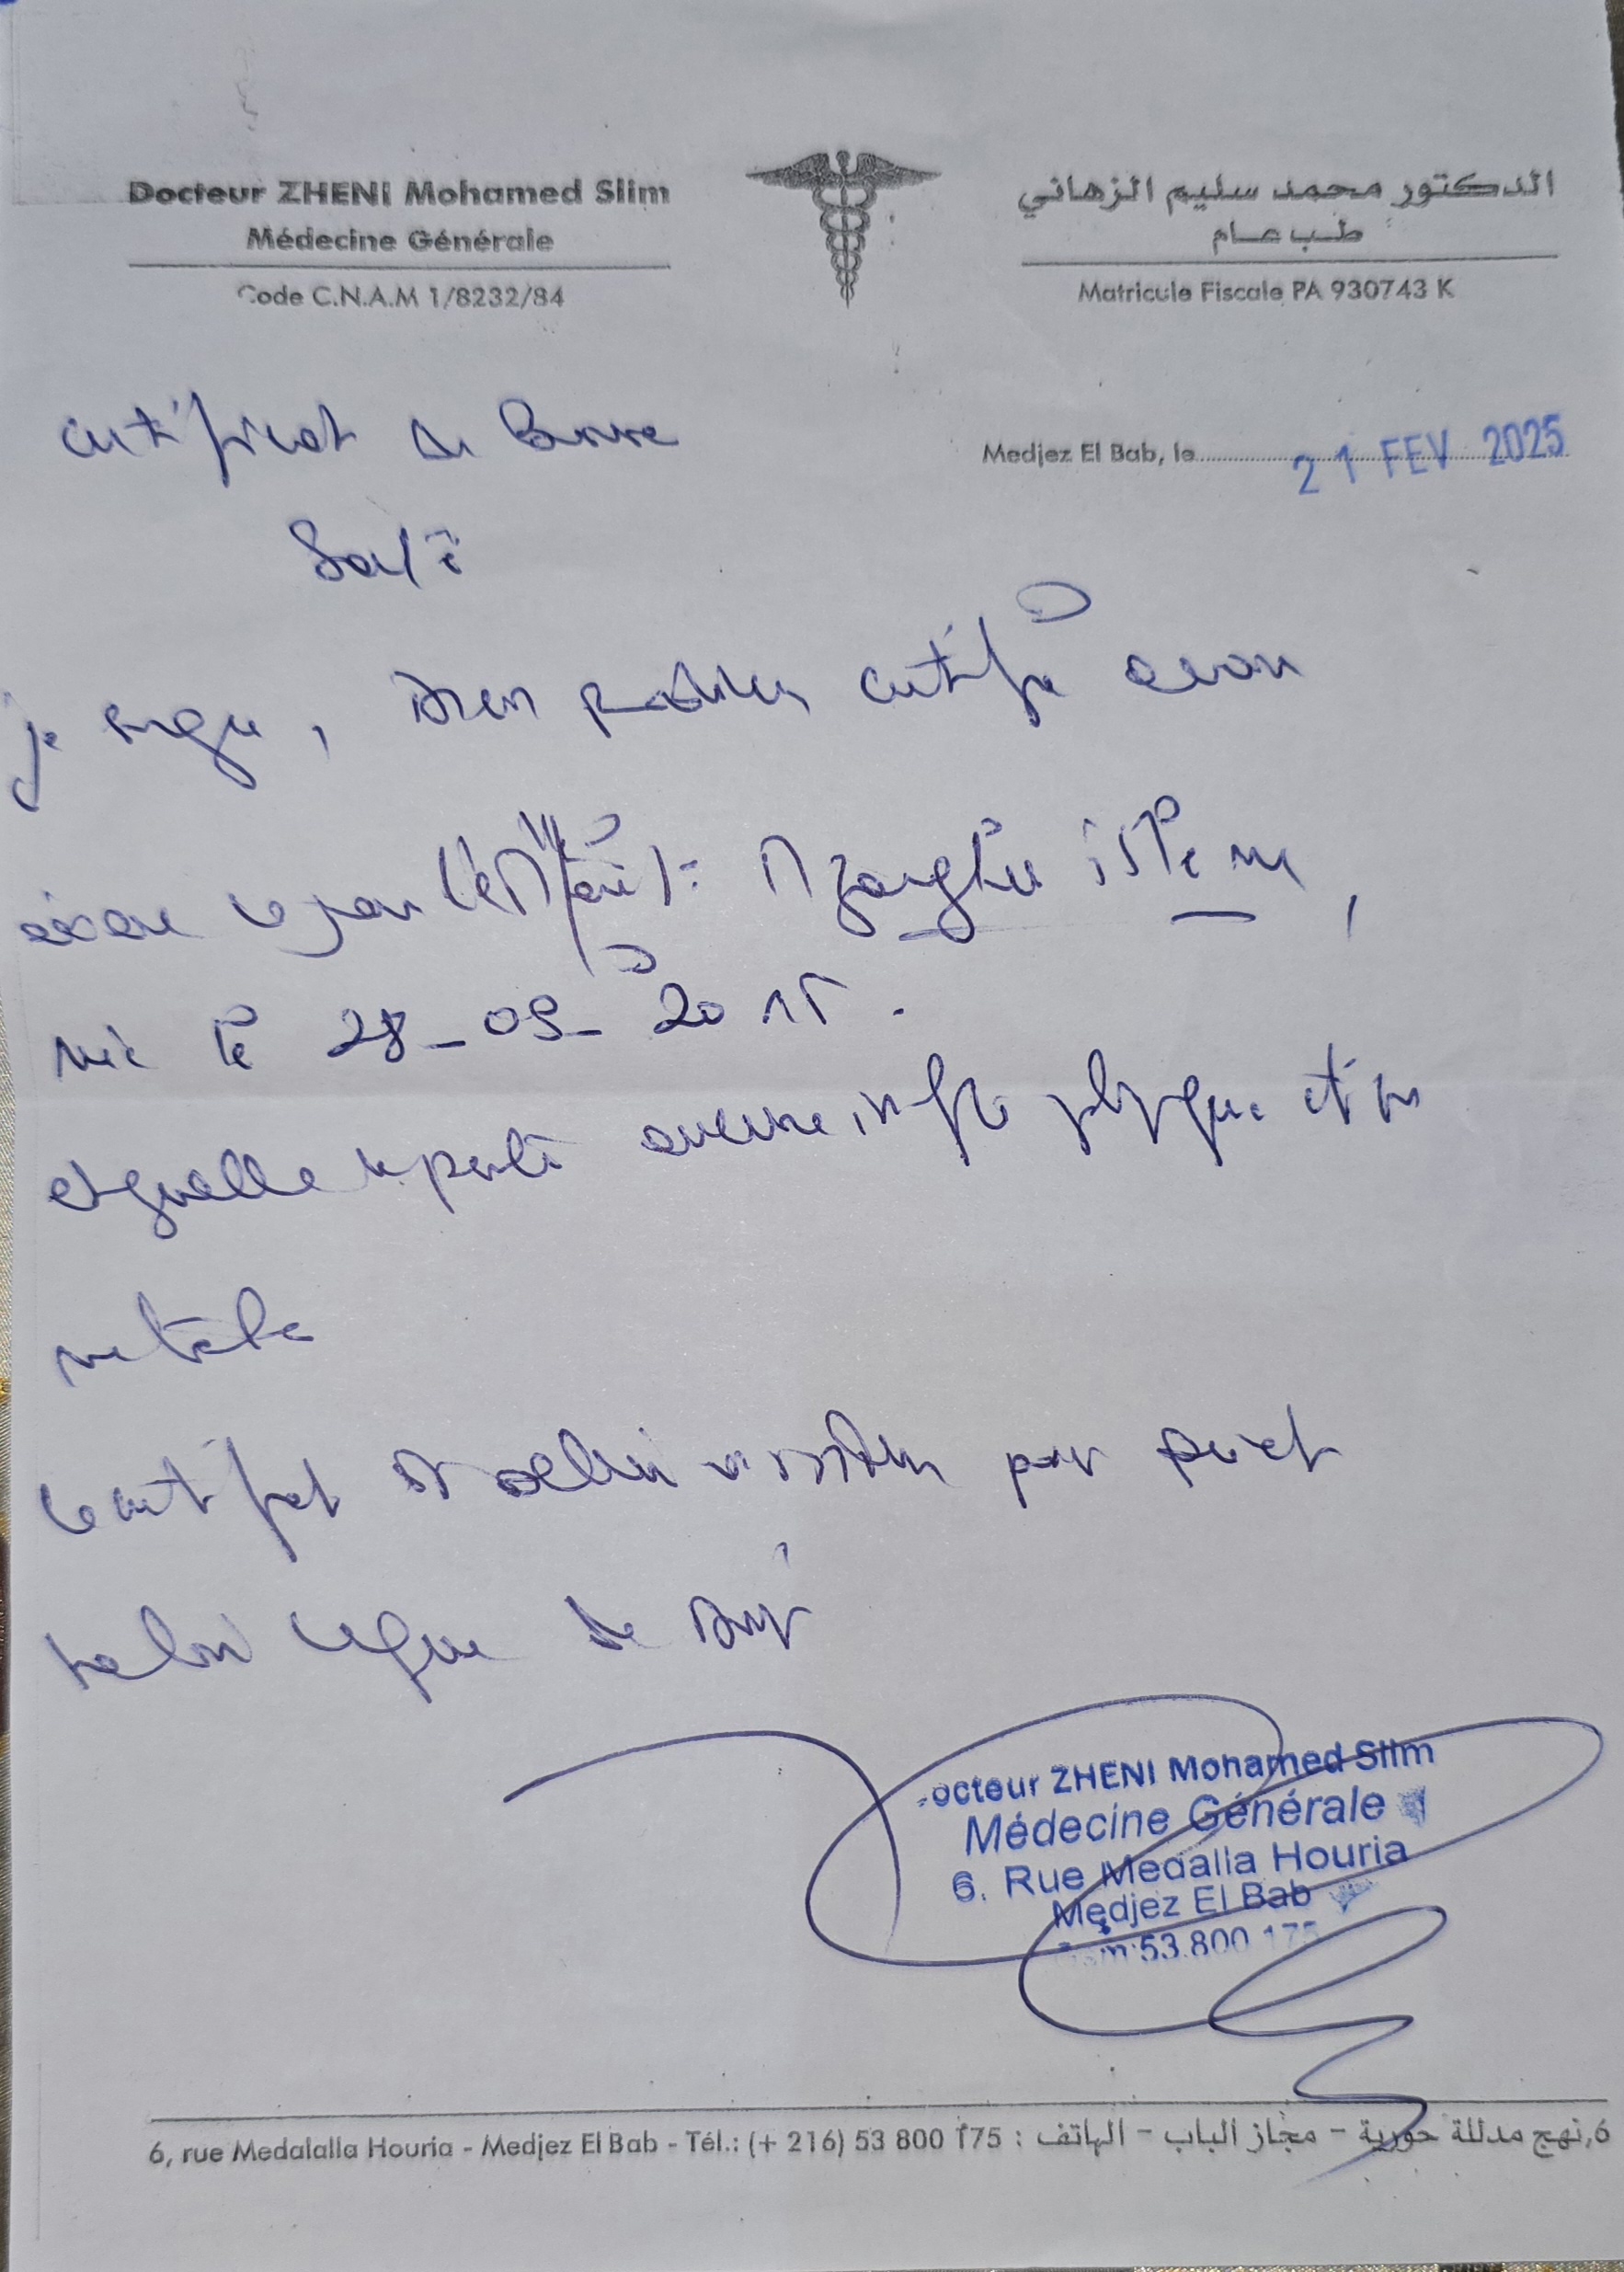 Docteur ZHENI Mohamed Slim
Médecine Générale
Code C.N.A.M 1/8232/84
الدكتور محمد سليم الزهاني
طب عام
Matricule Fiscale PA 930743 K
Medjez El Bab, le 21 FEV 2025
certificat de bonne
Santé
je soussigné, certifie avoir
examiné ce jour
née le 28-09-2015.
et qu'elle ne porte aucune physique
mentale
certificat est délivré pour
valoir ce que de droit
Docteur ZHENI Mohamed Slim
Médecine Générale
6. Rue Medalla Houria
Medjez El Bab
Gsm:53.800 175
6, rue Medalalla Houria - Medjez El Bab - Tél.: (+ 216) 53 800 175 : 6,نهج مدللة حورية - مجاز الباب - الهاتف